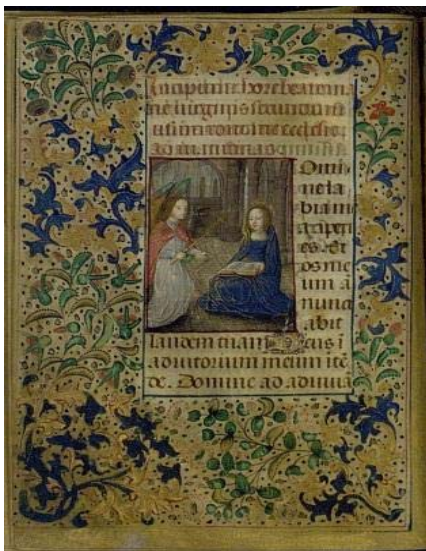 Incipiunt hore beate ma
rie virginis secundum
usum romane ecclesie
Domi
ne la
bia m
aperi
es. Et
os me
um a
nunci
abit
laudem tuam Deus i
adiutorium meum inte
de. Domine ad adiuua